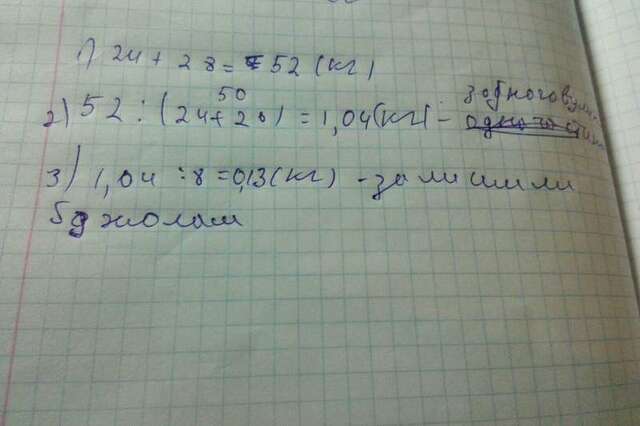 1) 24 + 28 = 52 (кг)
50
2) 52 : (24 + 26) = 1,04 (кг) - з одного вули-
3) 1,04 : 8 = 0,13 (кг) - залишили
бджолам